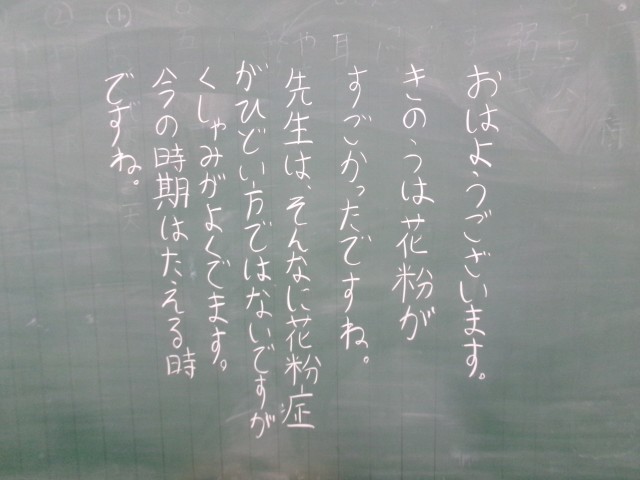 おはようございます。
きのうは花粉が
すごかったですね。
先生は、そんなに花粉症
がひどい方ではないですが
くしゃみがよくでます。
今の時期はたえる時
ですね。